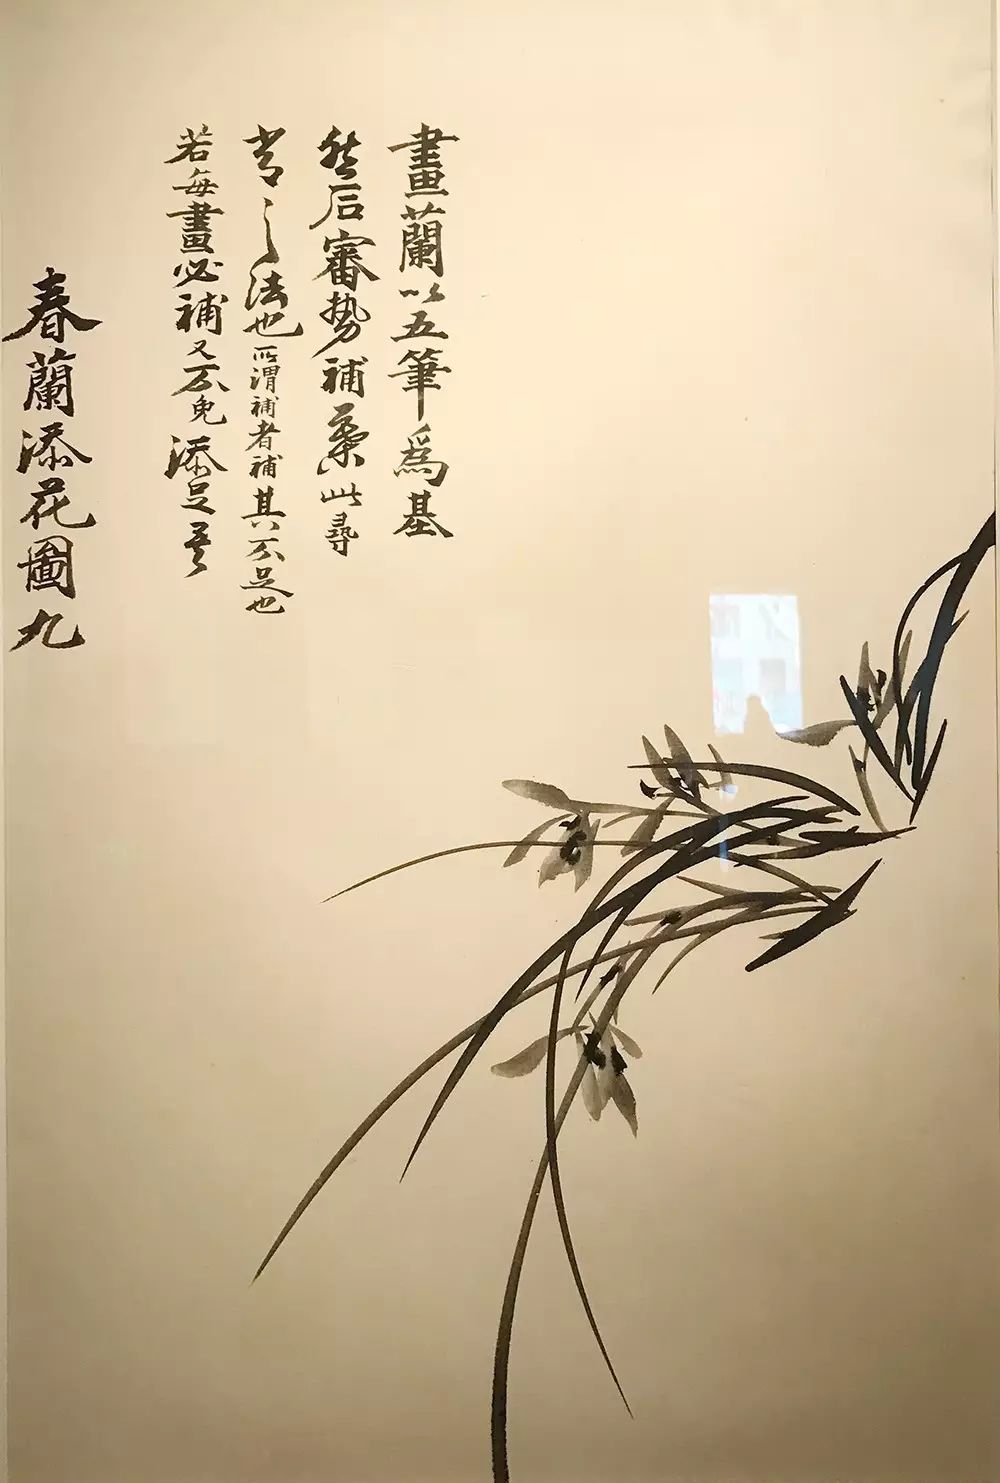 畫蘭以五筆爲基
然后審势補葉此尋
常之法也所謂補者補其不足也
若每畫必補又不免添足矣
春蘭添花圖九